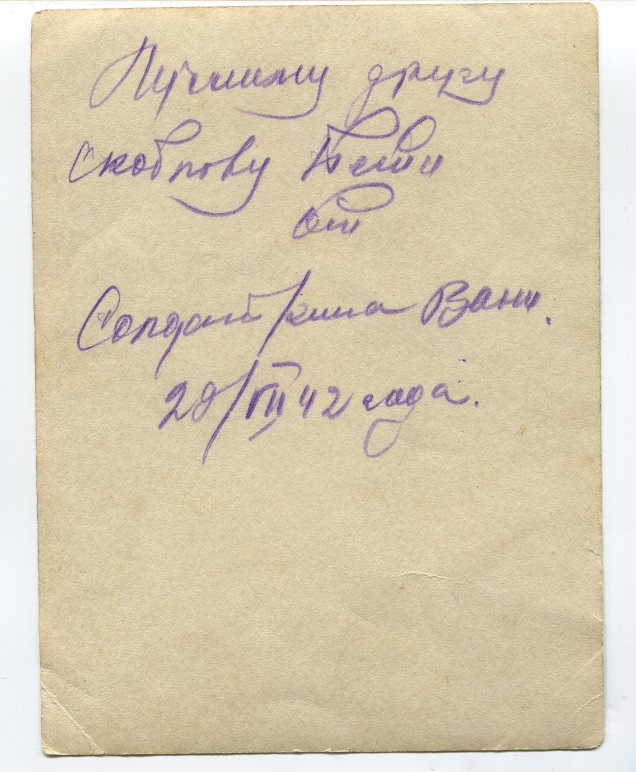 Лучшему другу
Скоблову Пети
от
Солдаткина Вани.
20/VII 42 года.